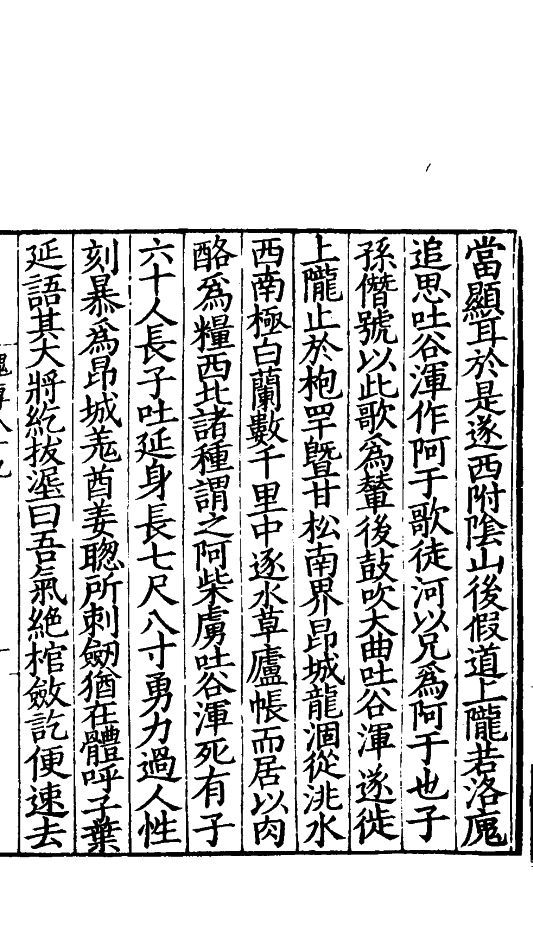 當顯耳於是遂西附陰山後假道上隴若洛廆
追思吐谷渾作阿于歌徒河以兄爲阿于也子
孫僭號以此歌爲輦後鼓吹大曲吐谷渾遂徙
上隴止於枹罕曁甘松南界昂城龍涸從洮水
西南極白蘭數千里中逐水草廬帳而居以肉
酪爲糧西北諸種謂之阿柴虜吐谷渾死有子
六十人長子吐延身長七尺八寸勇力過人性
刻暴爲昂城羗酋姜聦所刺劒猶在體呼子葉
延語其大將紇拔渥曰吾氣絶棺斂訖便速去